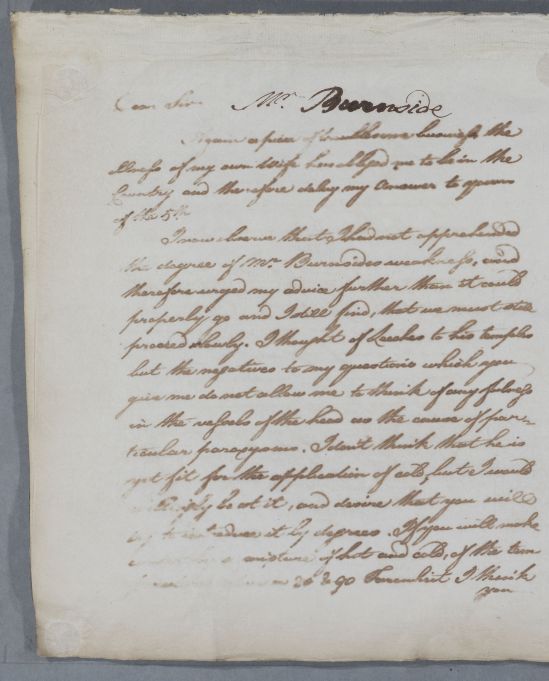 Dear Sir Mr. Burnside
Again a piece of troublesome business, the
illness of my own Wife has obliged me to be in the
Country and therefore delay my answer to yours
of the 5th
I now observe that I had not apprehended
the degree of Mr. Burnsides weakness, and
therefore urged my advice further than it could
properly go and I still find, that we must still
proceed slowly. I thought of Leeches to his temples
but the negatives to my questions which you
give me do not allow me to think of any fulness
in the vessels of the head as the cause of par-
ticular paroxysms. I don't think that he is
yet fit for the application of cold, but I would
be at it, and desire that you will
try to introduce it by degrees. If you will make
a mixture of hot and cold, of the tem
90 Farenheit I think
you